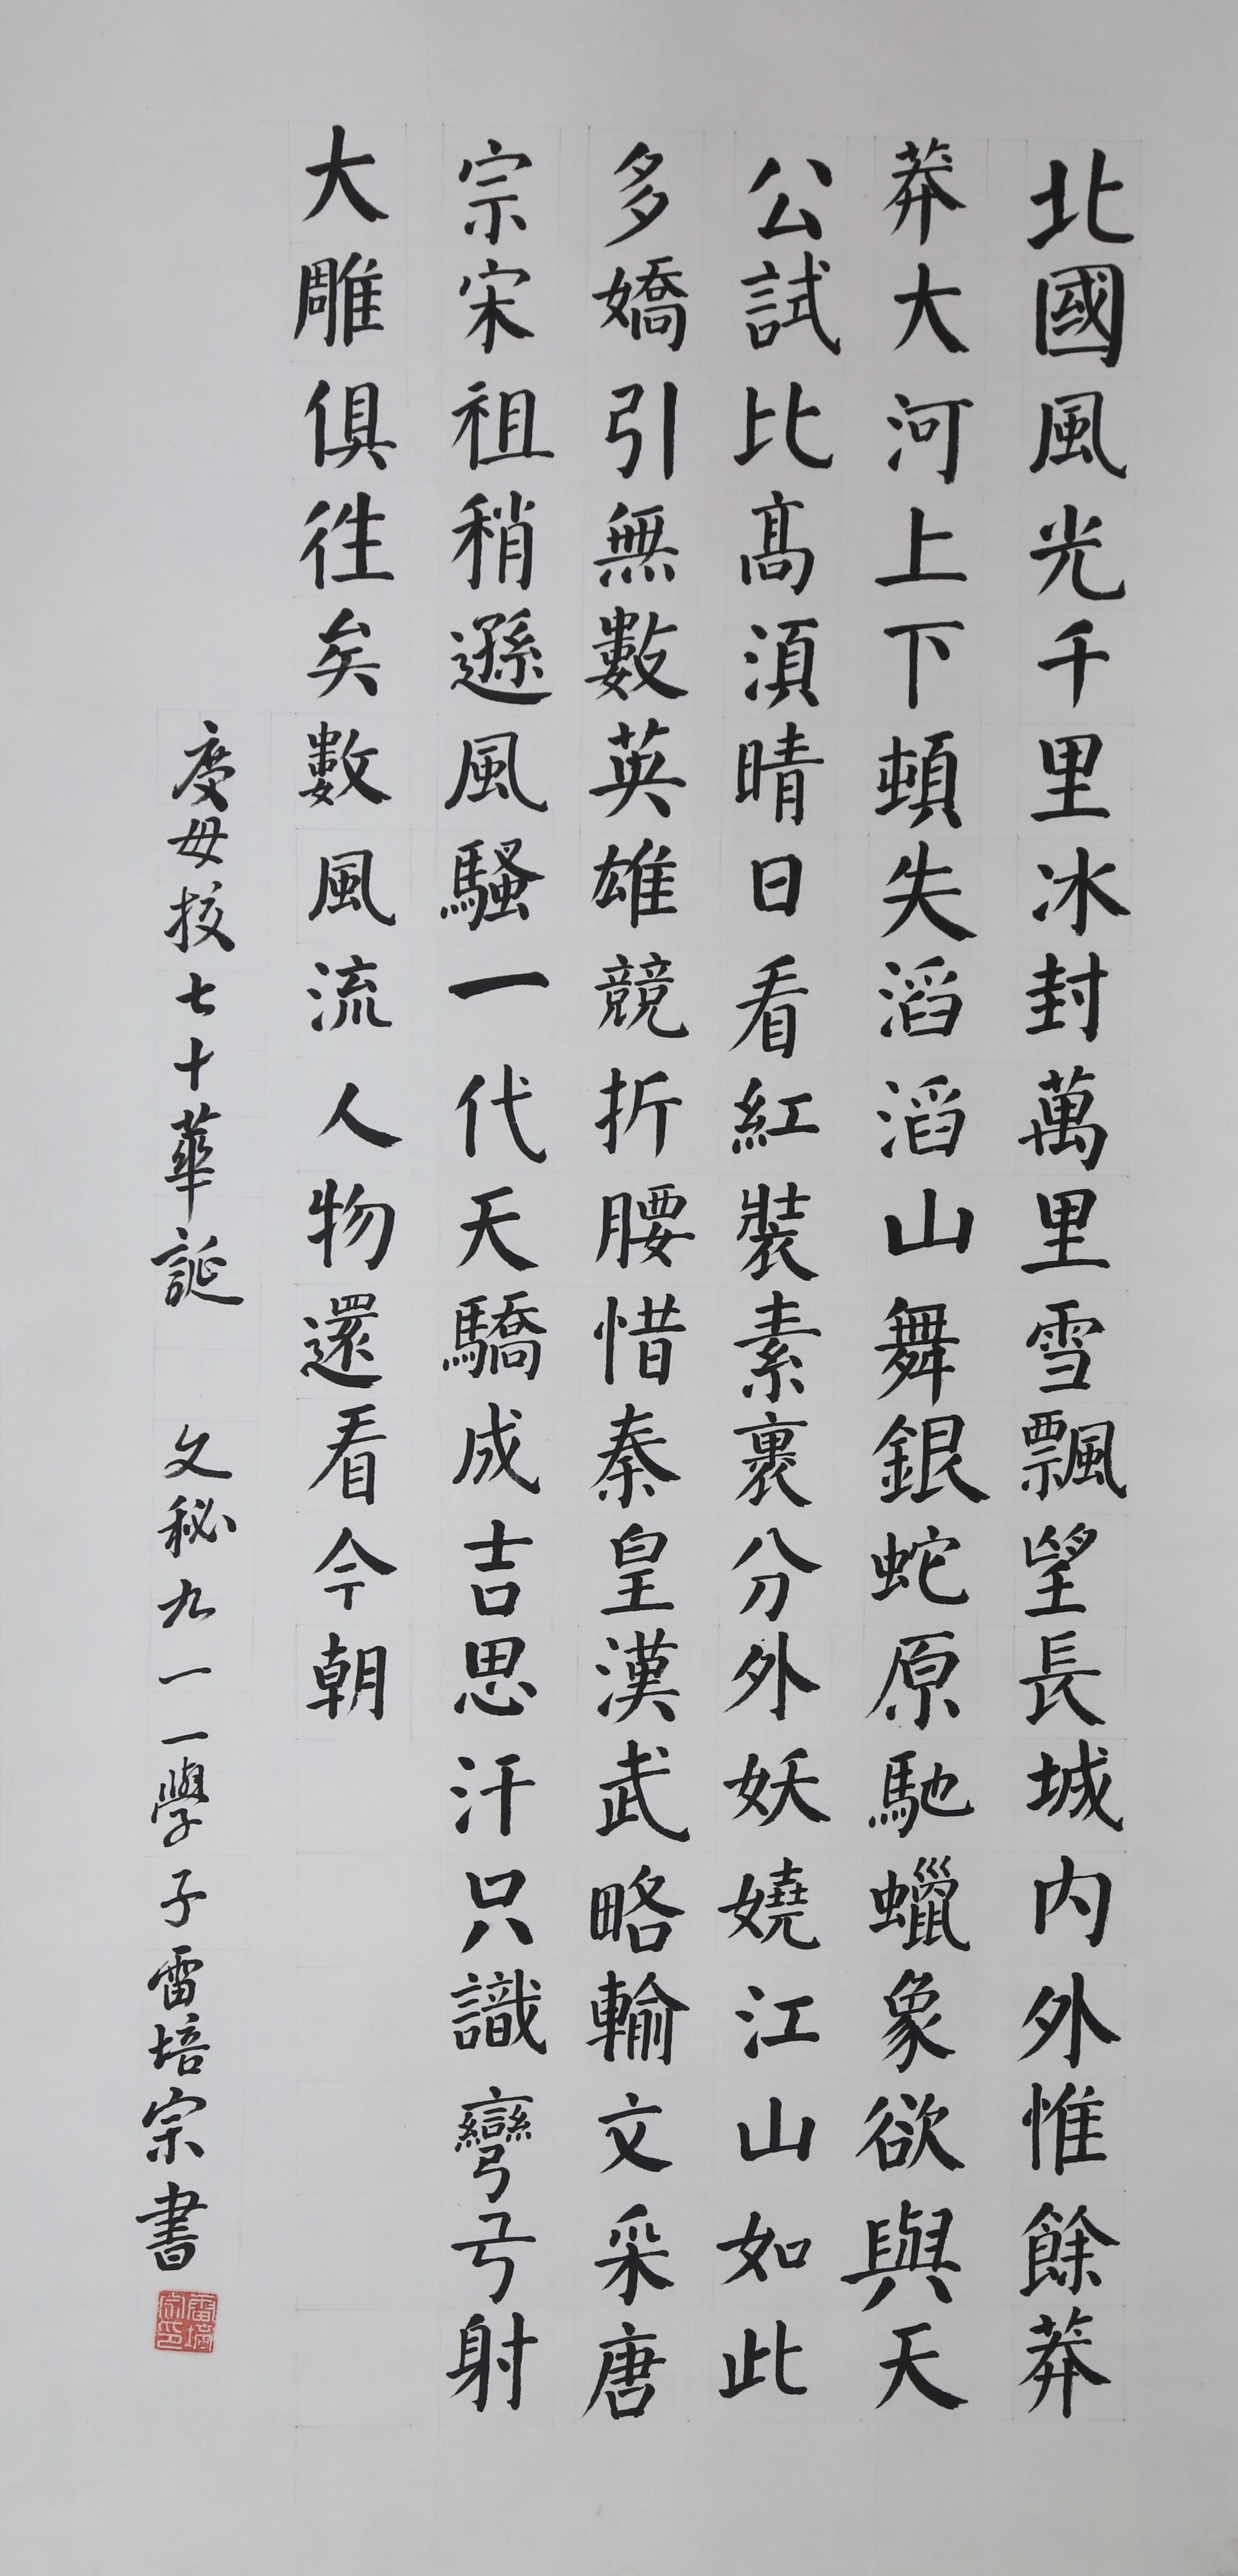 北國風光千里冰封萬里雪飄望長城内外惟餘莽
莽大河上下頓失滔滔山舞銀蛇原馳蠟象欲與天
公試比髙湏晴日看紅裝素裹分外妖嬈江山如此
多嬌引無數英雄競折腰惜秦皇漢武略輸文采唐
宗宋祖稍遜風騷一代天驕成吉思汗只識彎弓射
大雕俱徃矣數風流人物還看今朝
慶母校七十華誕 文秘九一一學子雷培宗書
雷培宗印